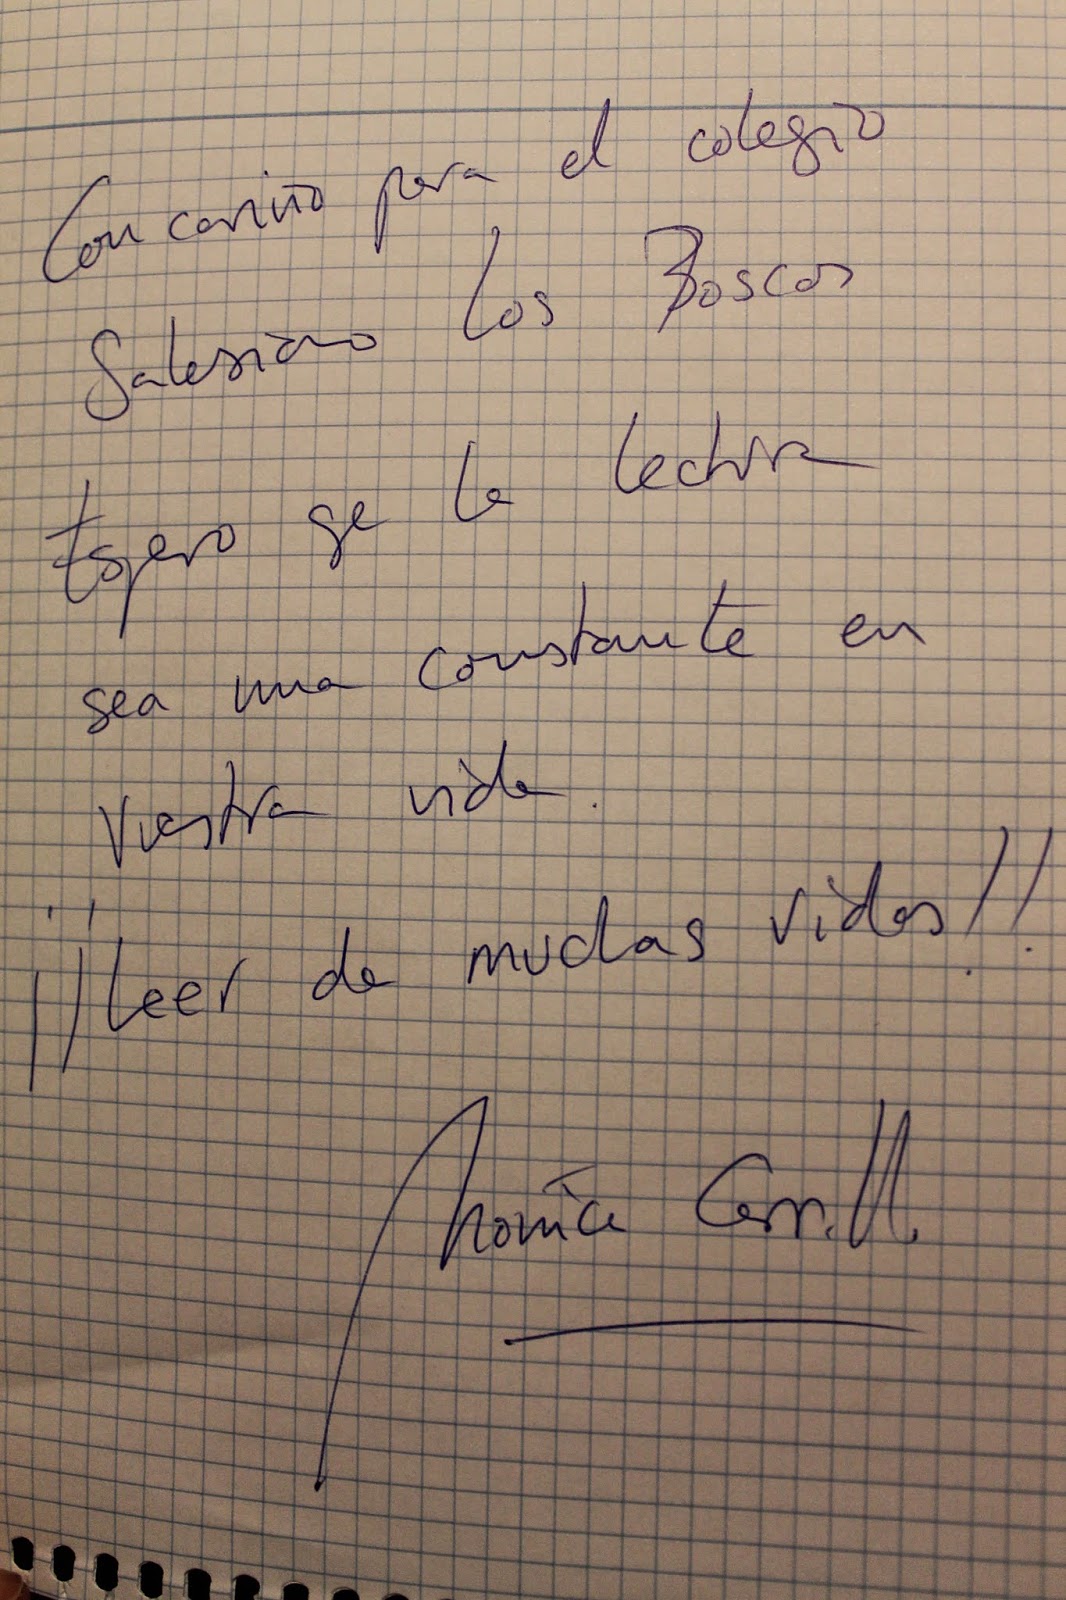 Con cariño para el colegio
Salesiano Los Boscos
Espero qe la lectura
sea una constante en
vuestra vida.
¡¡Leer da muchas vidas!!
Mónica Carrillo